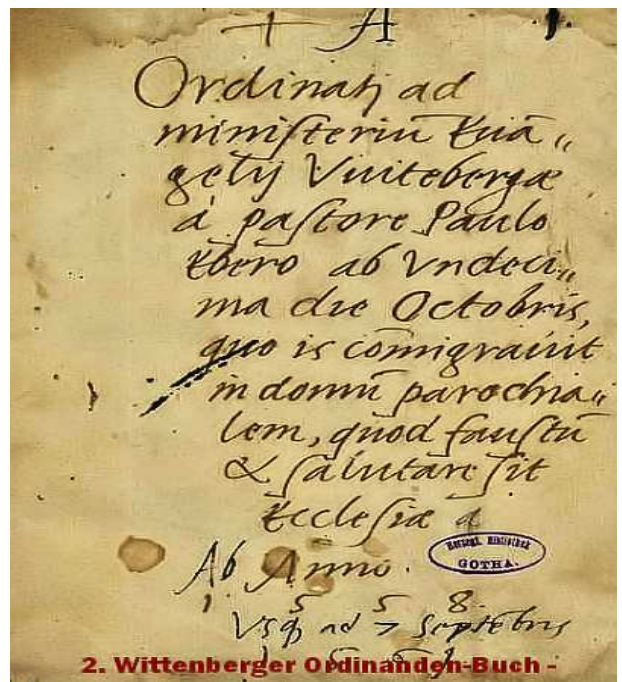 A
Ordinatj ad
ministeriū Euā„
gelij Vuitebergæ
á pastore Paulo
Ebero ab Vndeci„
ma die Octobris,
quo is cōmigrauit
in domū parochia„
lem, quod faustū
& salutare sit
Ecclesiæ
Ab Anno.
1 5 5 8.
Vsq ad 7 Septēbris
Herzogl. Bibliothek
GOTHA.
2. Wittenberger Ordinanden-Buch -